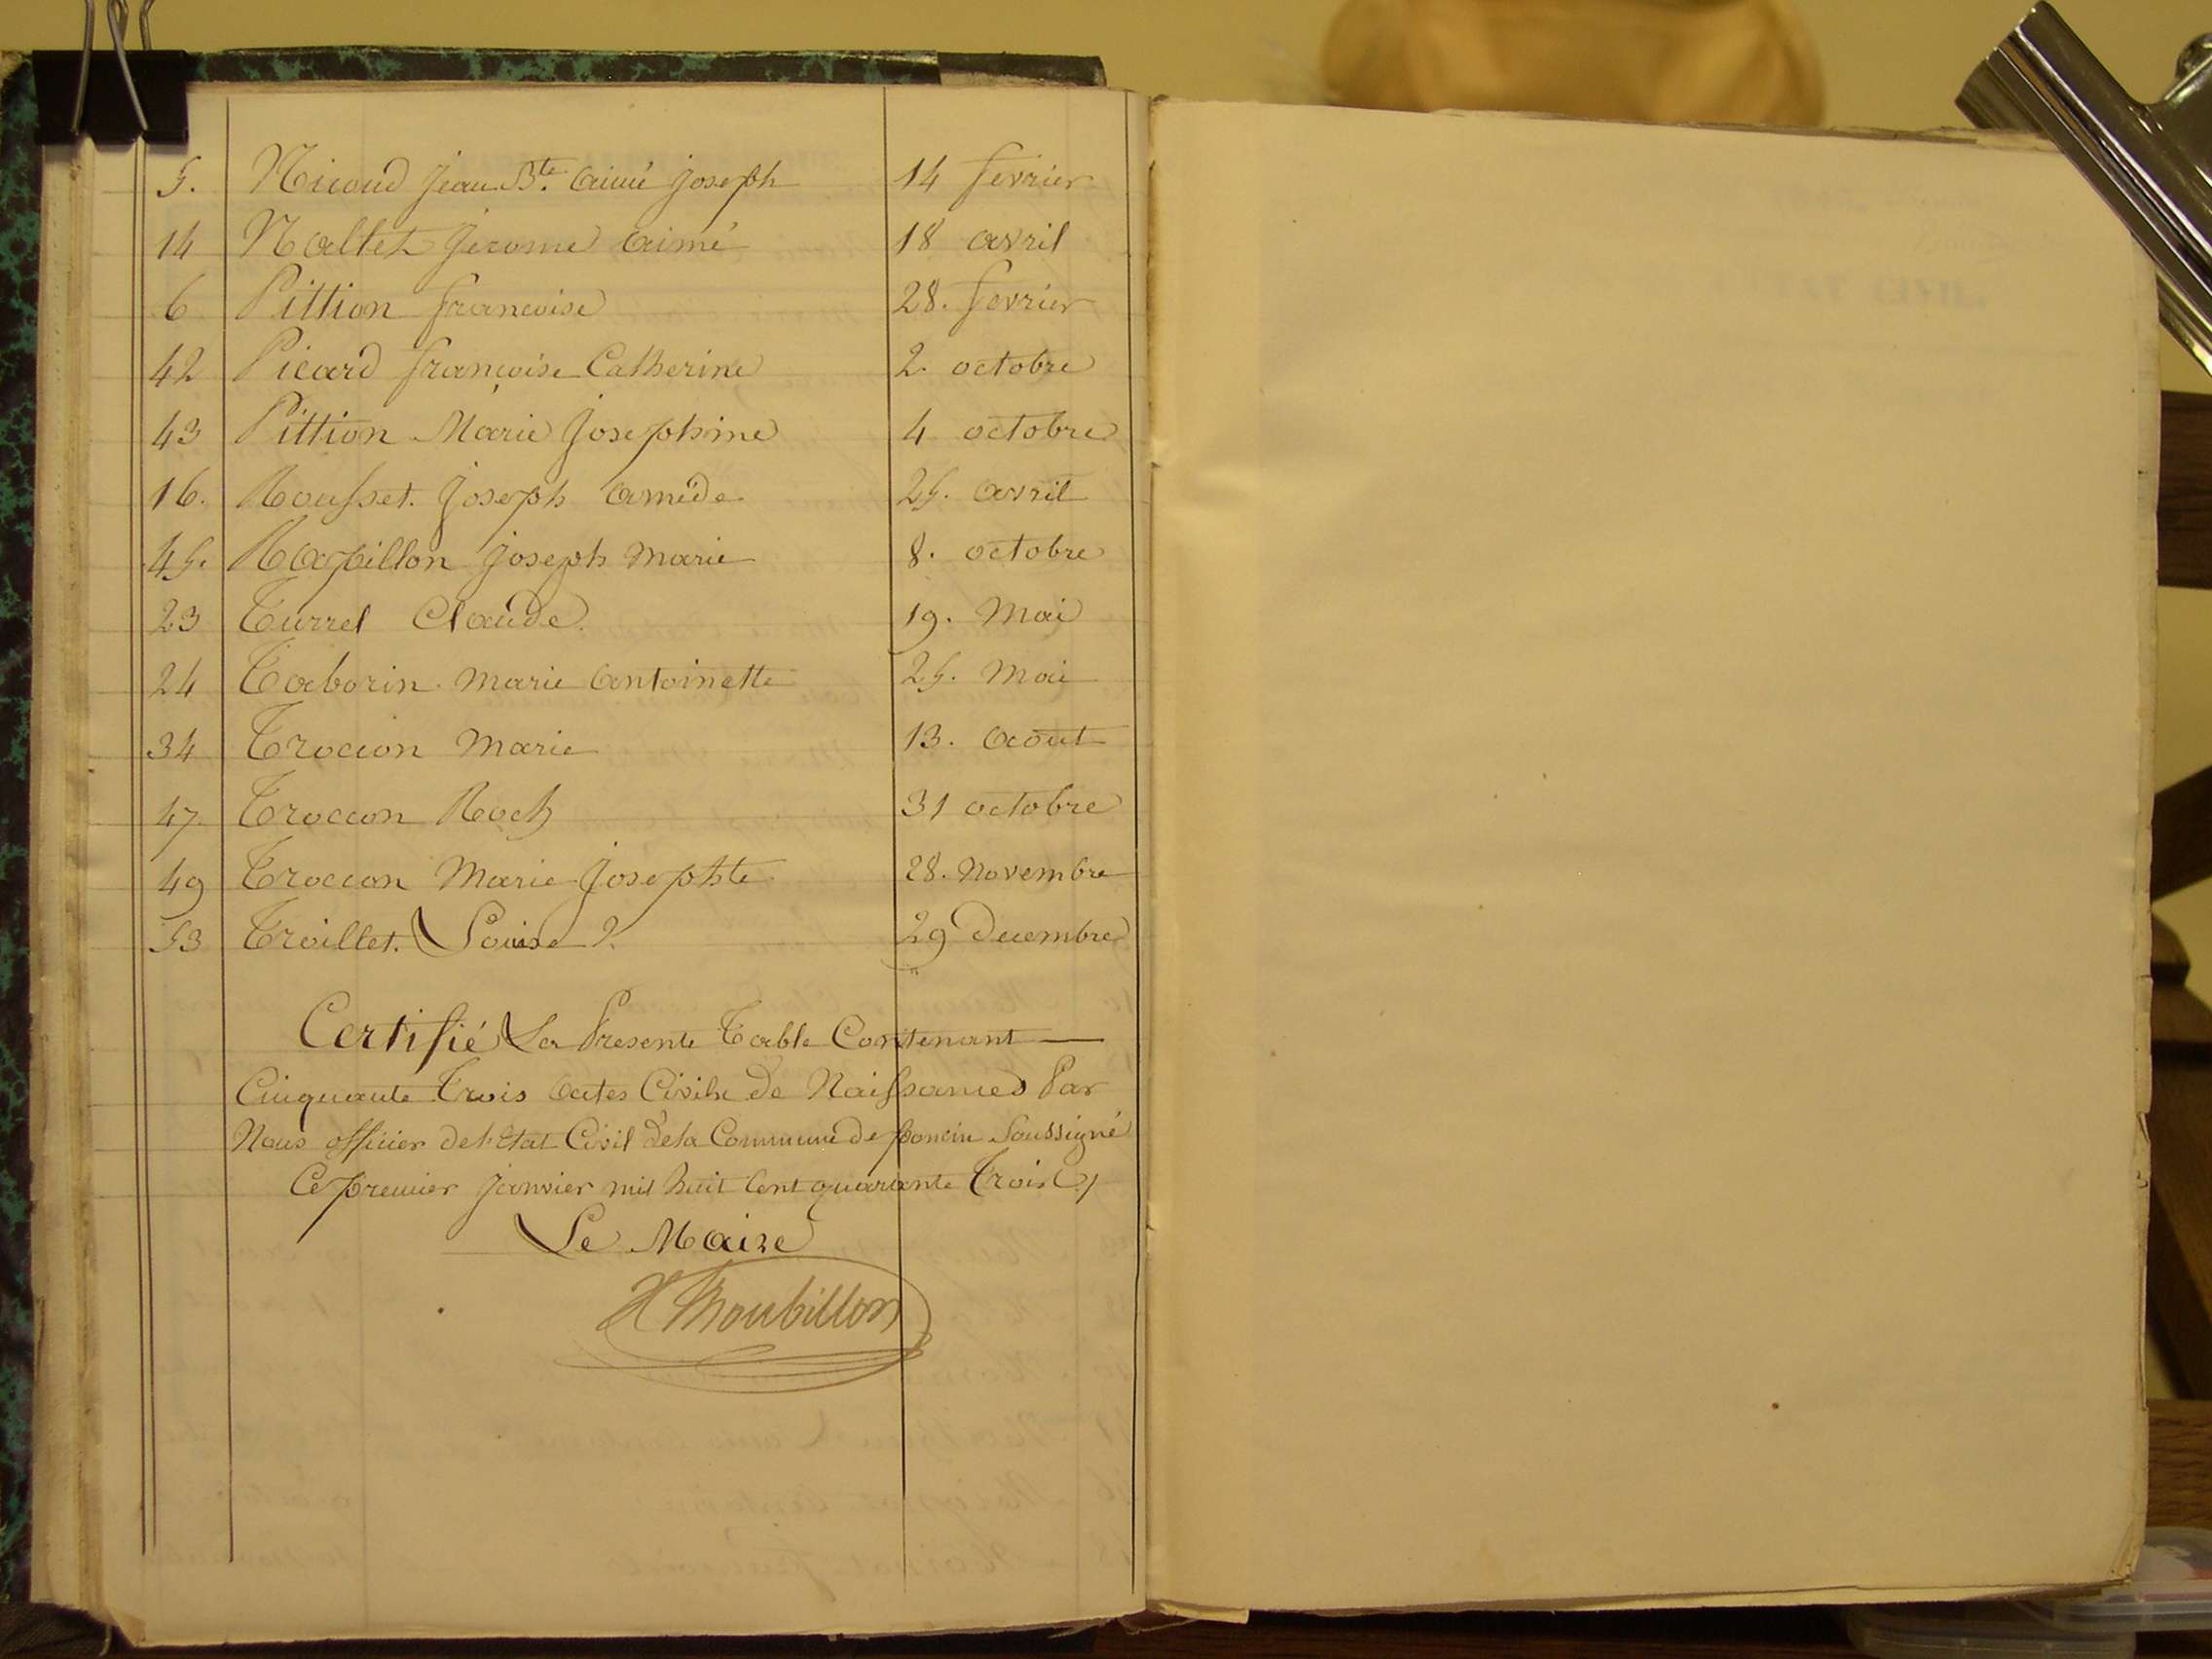 5. Nicoud Jean Bte aimé joseph 14 fevrier
14 Naltet Jerome aimé 18 avril
6 Pittion francoise 28. fevrier
42 Picard françoise Catherine 2. octobre
43 Pittion Marie Josephine 4 octobre
16. Rousset. Joseph amede 25. avril
45. Rapillon Joseph Marie 8. octobre
23 Turrel Claude. 19. Mai
24 Taborin. Marie antoinette 25. Mai
34 Trocion Marie 13. aout
47. Troccon Roch 31 octobre
49 Troccon Marie Josephte 28. Novembre
53 Troillet. Louise 29 Decembre
Certifié La Presente Table Contenant
Cinquante Trois actes Civils de Naissances Par
Nous officier de l'Etat Civil de la Commune de poncin Soussigné
Ce premier Janvier mil huit Cent quarante Trois
Le Maire
Roubillon
ETAT CIVIL.